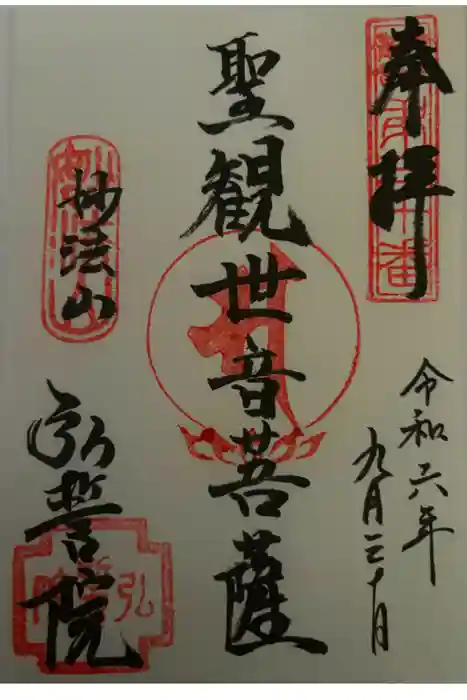 奉拝
令和六年
九月三十日
聖観世音菩薩
妙法山
弘誓院
弘誓院